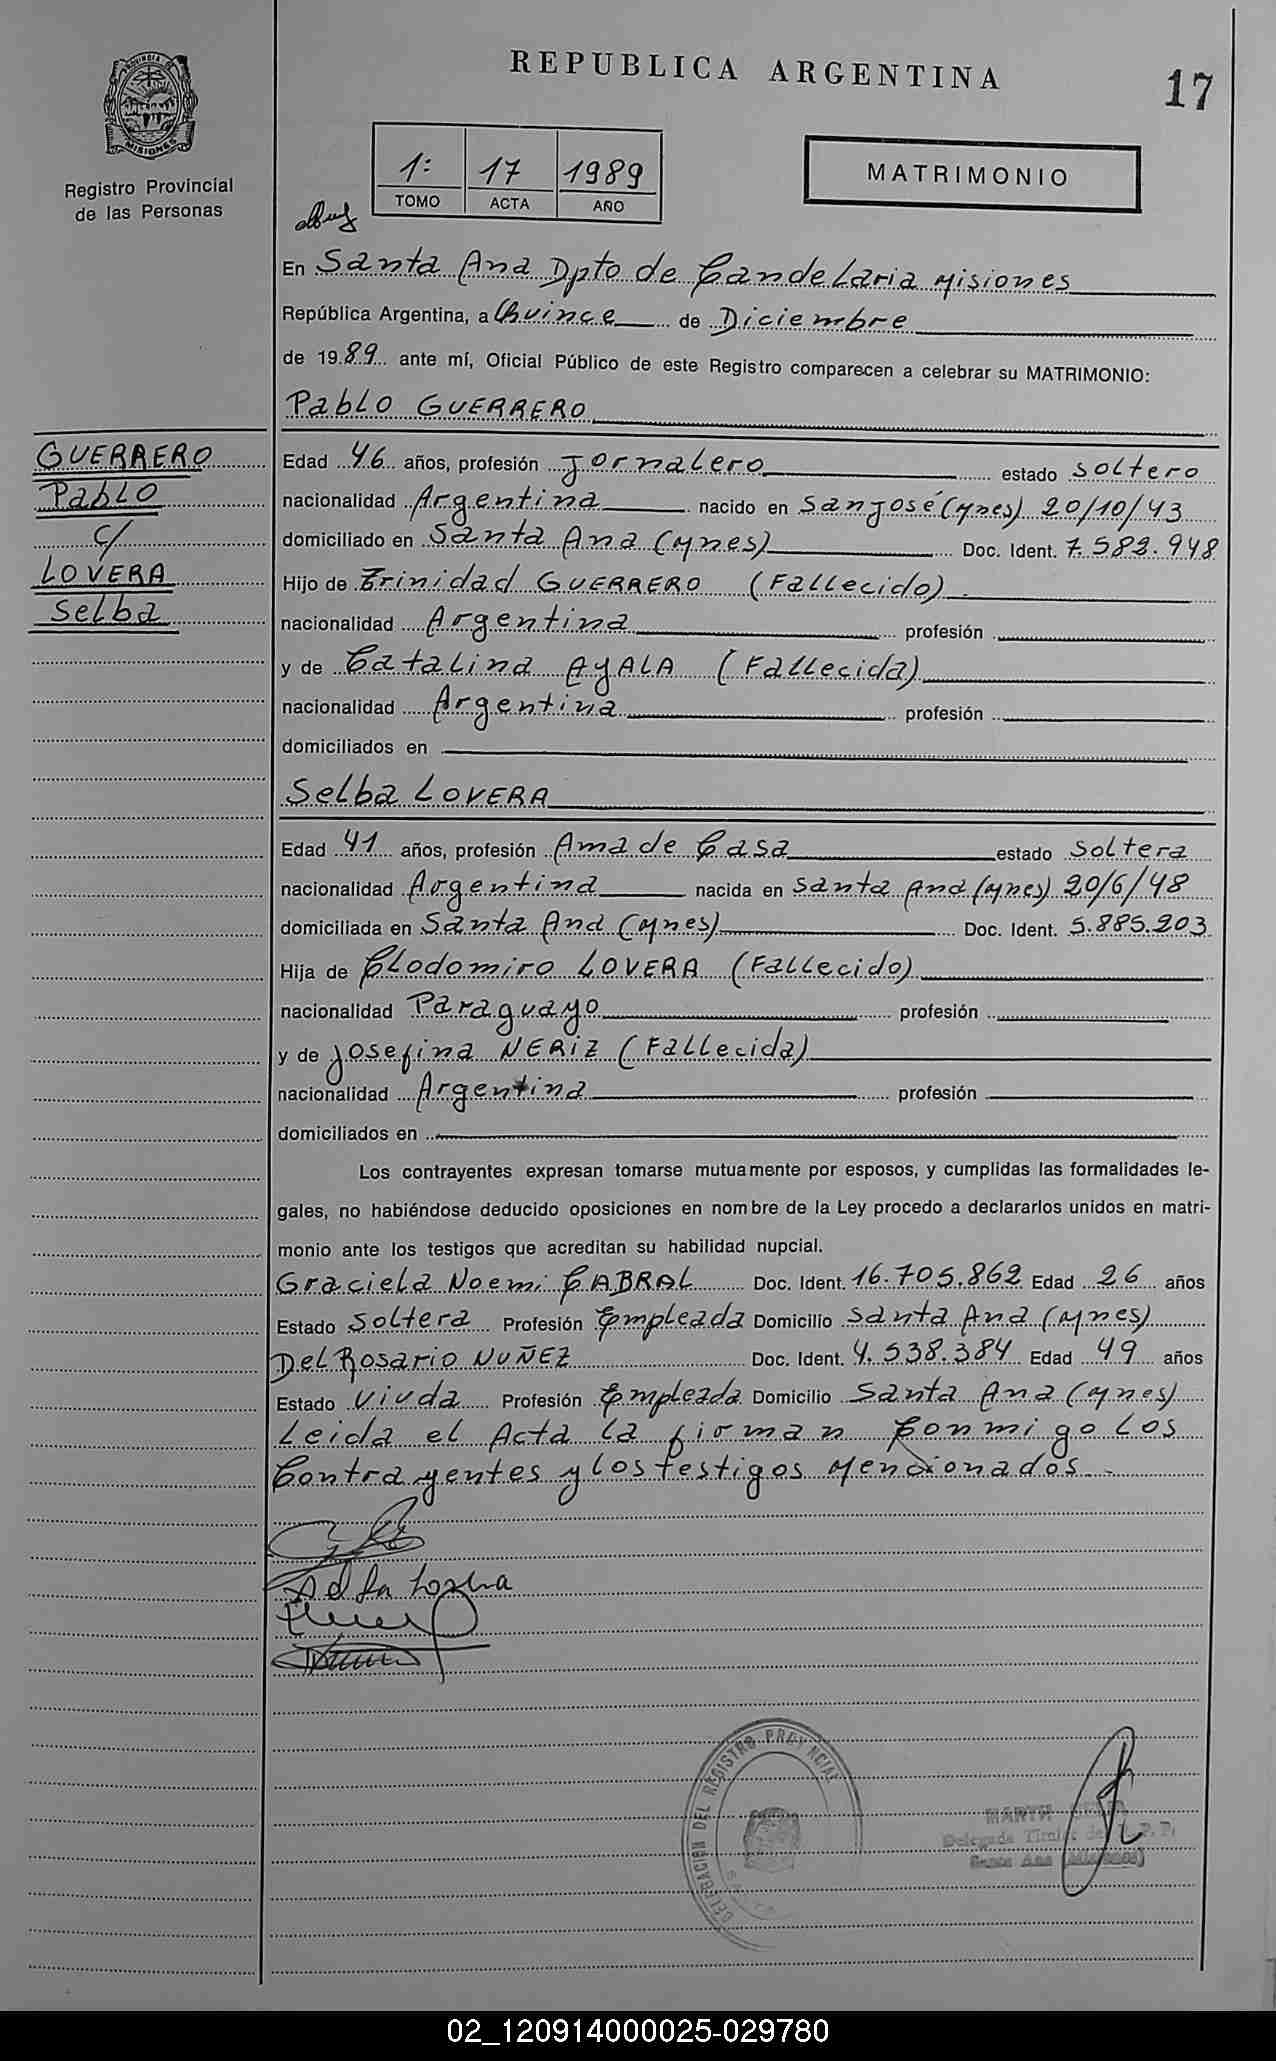 REPUBLICA ARGENTINA
17
PROVINCIA DE
MISIONES
Registro Provincial
de las Personas
1: 17 1989
TOMO ACTA AÑO
MATRIMONIO
En Santa Ana Dpto de Candelaria Misiones
República Argentina, a Quince de Diciembre
de 1989 ante mí, Oficial Público de este Registro comparecen a celebrar su MATRIMONIO:
Pablo GUERRERO
GUERRERO
Pablo
c/
LOVERA
Selba
Edad 46 años, profesión Jornalero estado soltero
nacionalidad Argentina nacido en San José (Mnes) 20/10/43
domiciliado en Santa Ana (Mnes) Doc. Ident. 7.582.948
Hijo de Trinidad GUERRERO (Fallecido)
nacionalidad Argentina profesión
y de Catalina AYALA (Fallecida)
nacionalidad Argentina profesión
domiciliados en
Selba LOVERA
Edad 41 años, profesión Ama de Casa estado soltera
nacionalidad Argentina nacida en Santa Ana (Mnes) 20/6/48
domiciliada en Santa Ana (Mnes) Doc. Ident. 5.885.203
Hija de Clodomiro LOVERA (Fallecido)
nacionalidad Paraguayo profesión
y de Josefina NERIZ (Fallecida)
nacionalidad Argentina profesión
domiciliados en
Los contrayentes expresan tomarse mutuamente por esposos, y cumplidas las formalidades le-
gales, no habiéndose deducido oposiciones en nombre de la Ley procedo a declararlos unidos en matri-
monio ante los testigos que acreditan su habilidad nupcial.
Graciela Noemi CABRAL Doc. Ident. 16.705.862 Edad 26 años
Estado Soltera Profesión Empleada Domicilio Santa Ana (Mnes)
Del Rosario NUÑEZ Doc. Ident. 4.538.384 Edad 49 años
Estado Viuda Profesión Empleada Domicilio Santa Ana (Mnes)
Leida el Acta la firman Conmigo los
Contrayentes y los testigos Mencionados.
DELEGACION DEL REGISTRO PROVINCIAL
Santa Ana (Misiones)
02_120914000025-029780